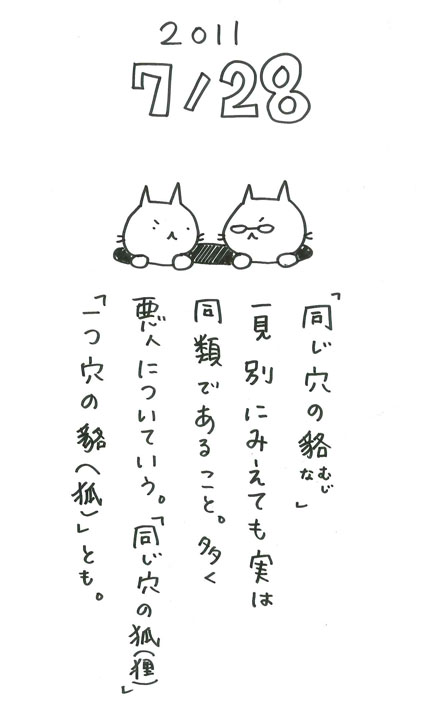 2011
7/28
「同じ穴の貉むじな」
一見別にみえても実は
同類であること。多く
悪人についていう。「同じ穴の狐(狸)」
「一つ穴の貉(狐)」とも。